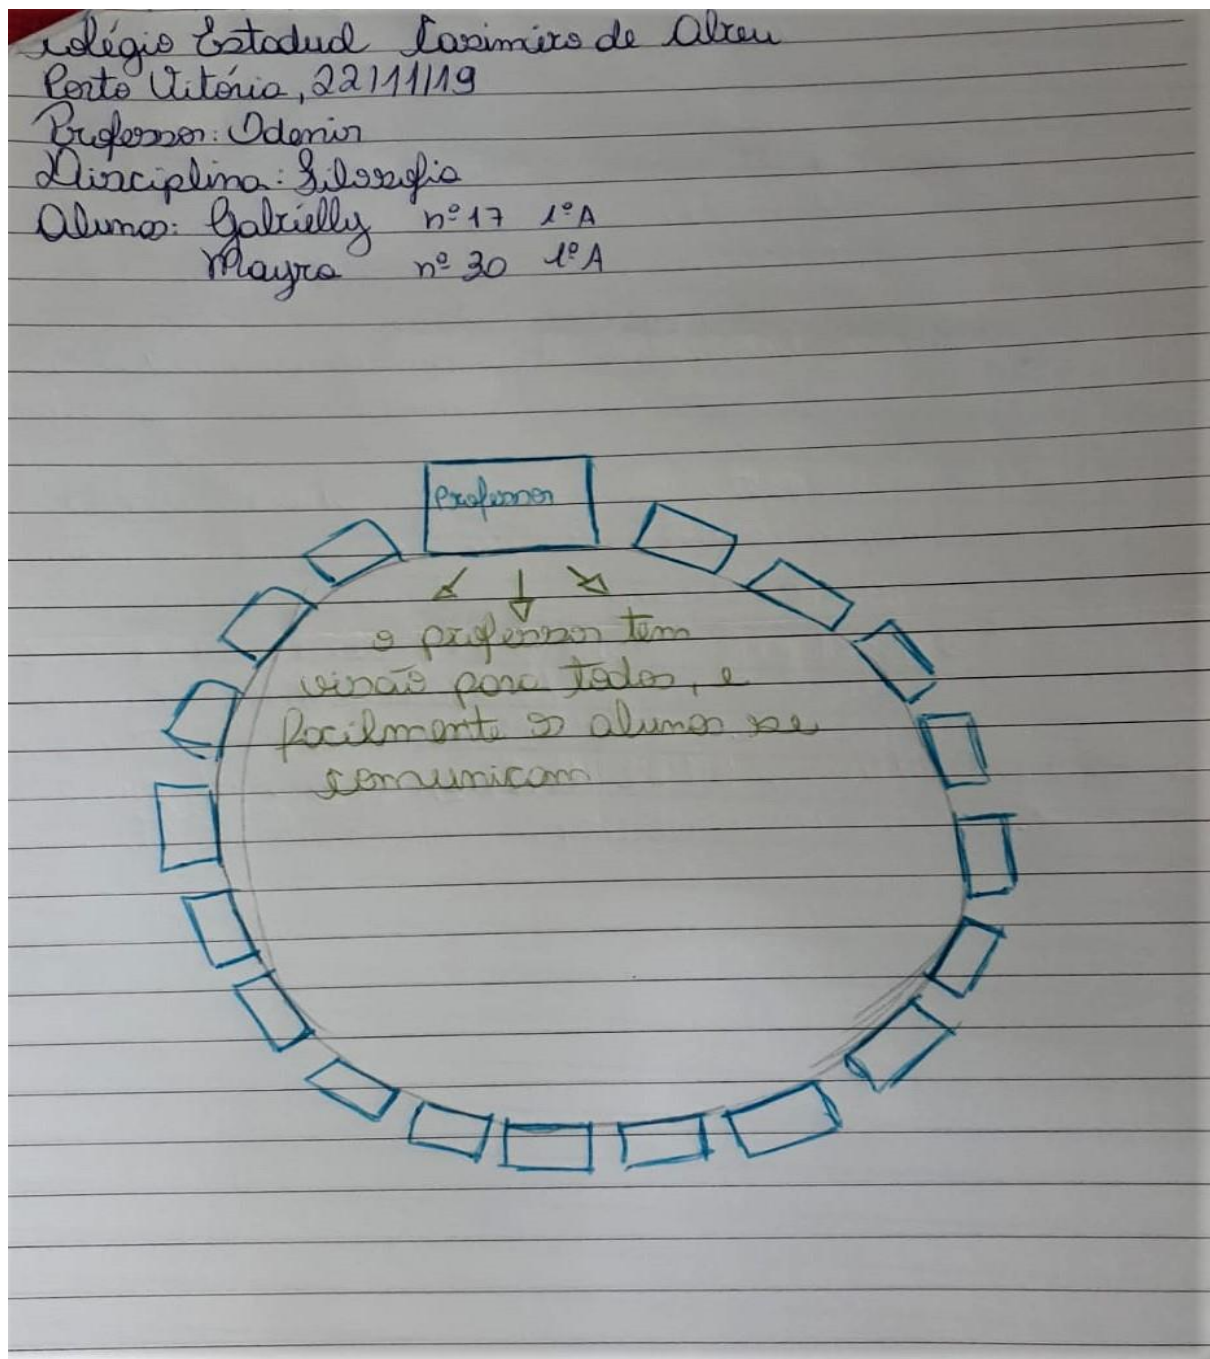 Colégio Estadual Casimiro de Abreu
Porto Vitória, 22/11/19
Professor: Odenir
Disciplina: Filosofia
Alunas: Gabrielly nº 17 1º A
Mayra nº 30 1º A
Professor
o professor tem
visão para todos, e
facilmente os alunos se
comunicam